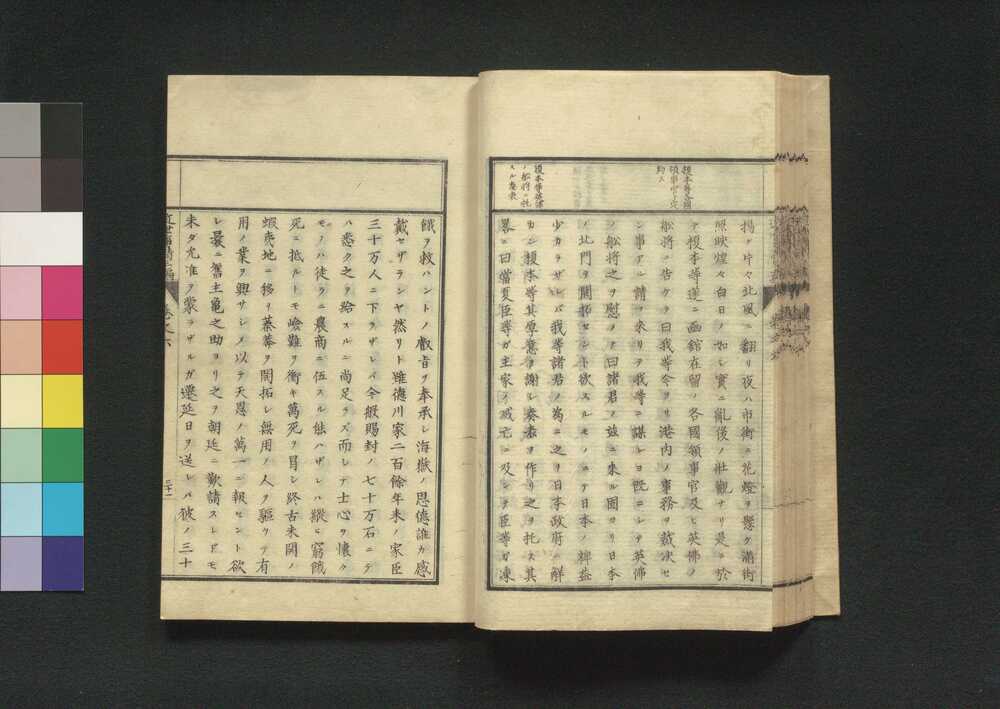 揚ゲ片々北風ニ翻リ夜ハ市街ニ花燈ヲ懸ケ滿街
照映煌々白日ノ如シ實ニ亂後ノ壯觀ナリ是ニ於
テ榎本等逹ニ函館在留ノ各國領事官及ヒ英佛ノ
船將ニ告ケテ曰我等今ヨリ港内ノ事務ヲ裁决セ
ン事アル請フ來リテ我等ニ謀レヨ既ニシテ英佛
ノ船將之ヲ慰メテ曰諸君ノ玆ニ來ル固ヨリ日本
ノ北門ヲ開拓セント欲スルモノニテ日本ノ裨益
少カラザレバ我等諸君ノ爲ニ之ヲ日本政府ニ解
カン榎本等其厚意ヲ謝シ奏者ヲ作リ之ヲ托ス其
畧ニ曰當夏臣等ガ主家ノ滅亡ニ及シテ臣等ガ凍
榎本等各國
領事官ト定
約ス
榎本等英佛
ノ船將ニ托
スル奏表
餓ヲ救ハントノ叡旨ヲ奉承シ海嶽ノ恩德誰カ感
戴セザランヤ然リト雖德川家二百餘年来ノ家臣
三十万人ニ下ラザレバ今般賜封ノ七十万石ニテ
ハ悉ク之ヲ給スルニ尚足ラズ而シテ士心ヲ懷ク
モノハ徒ラニ農商ニ伍スル能ハザレハ縱ヒ窮餓
死ニ抵ルトモ嶮難ヲ衝キ萬死ヲ冒シ終古未開ノ
蝦夷地ニ移リ蓁蕪ヲ開拓シ無用ノ人ヲ驅ケテ有
用ノ業ヲ興サシメ以テ天恩ノ萬一ニ報セント欲
シ曩ニ舊主亀之助ヨリ之ヲ朝廷ニ歎請スレドモ
未タ允准ヲ蒙ラザルガ遷延日ヲ送レバ彼ノ三十
三十一